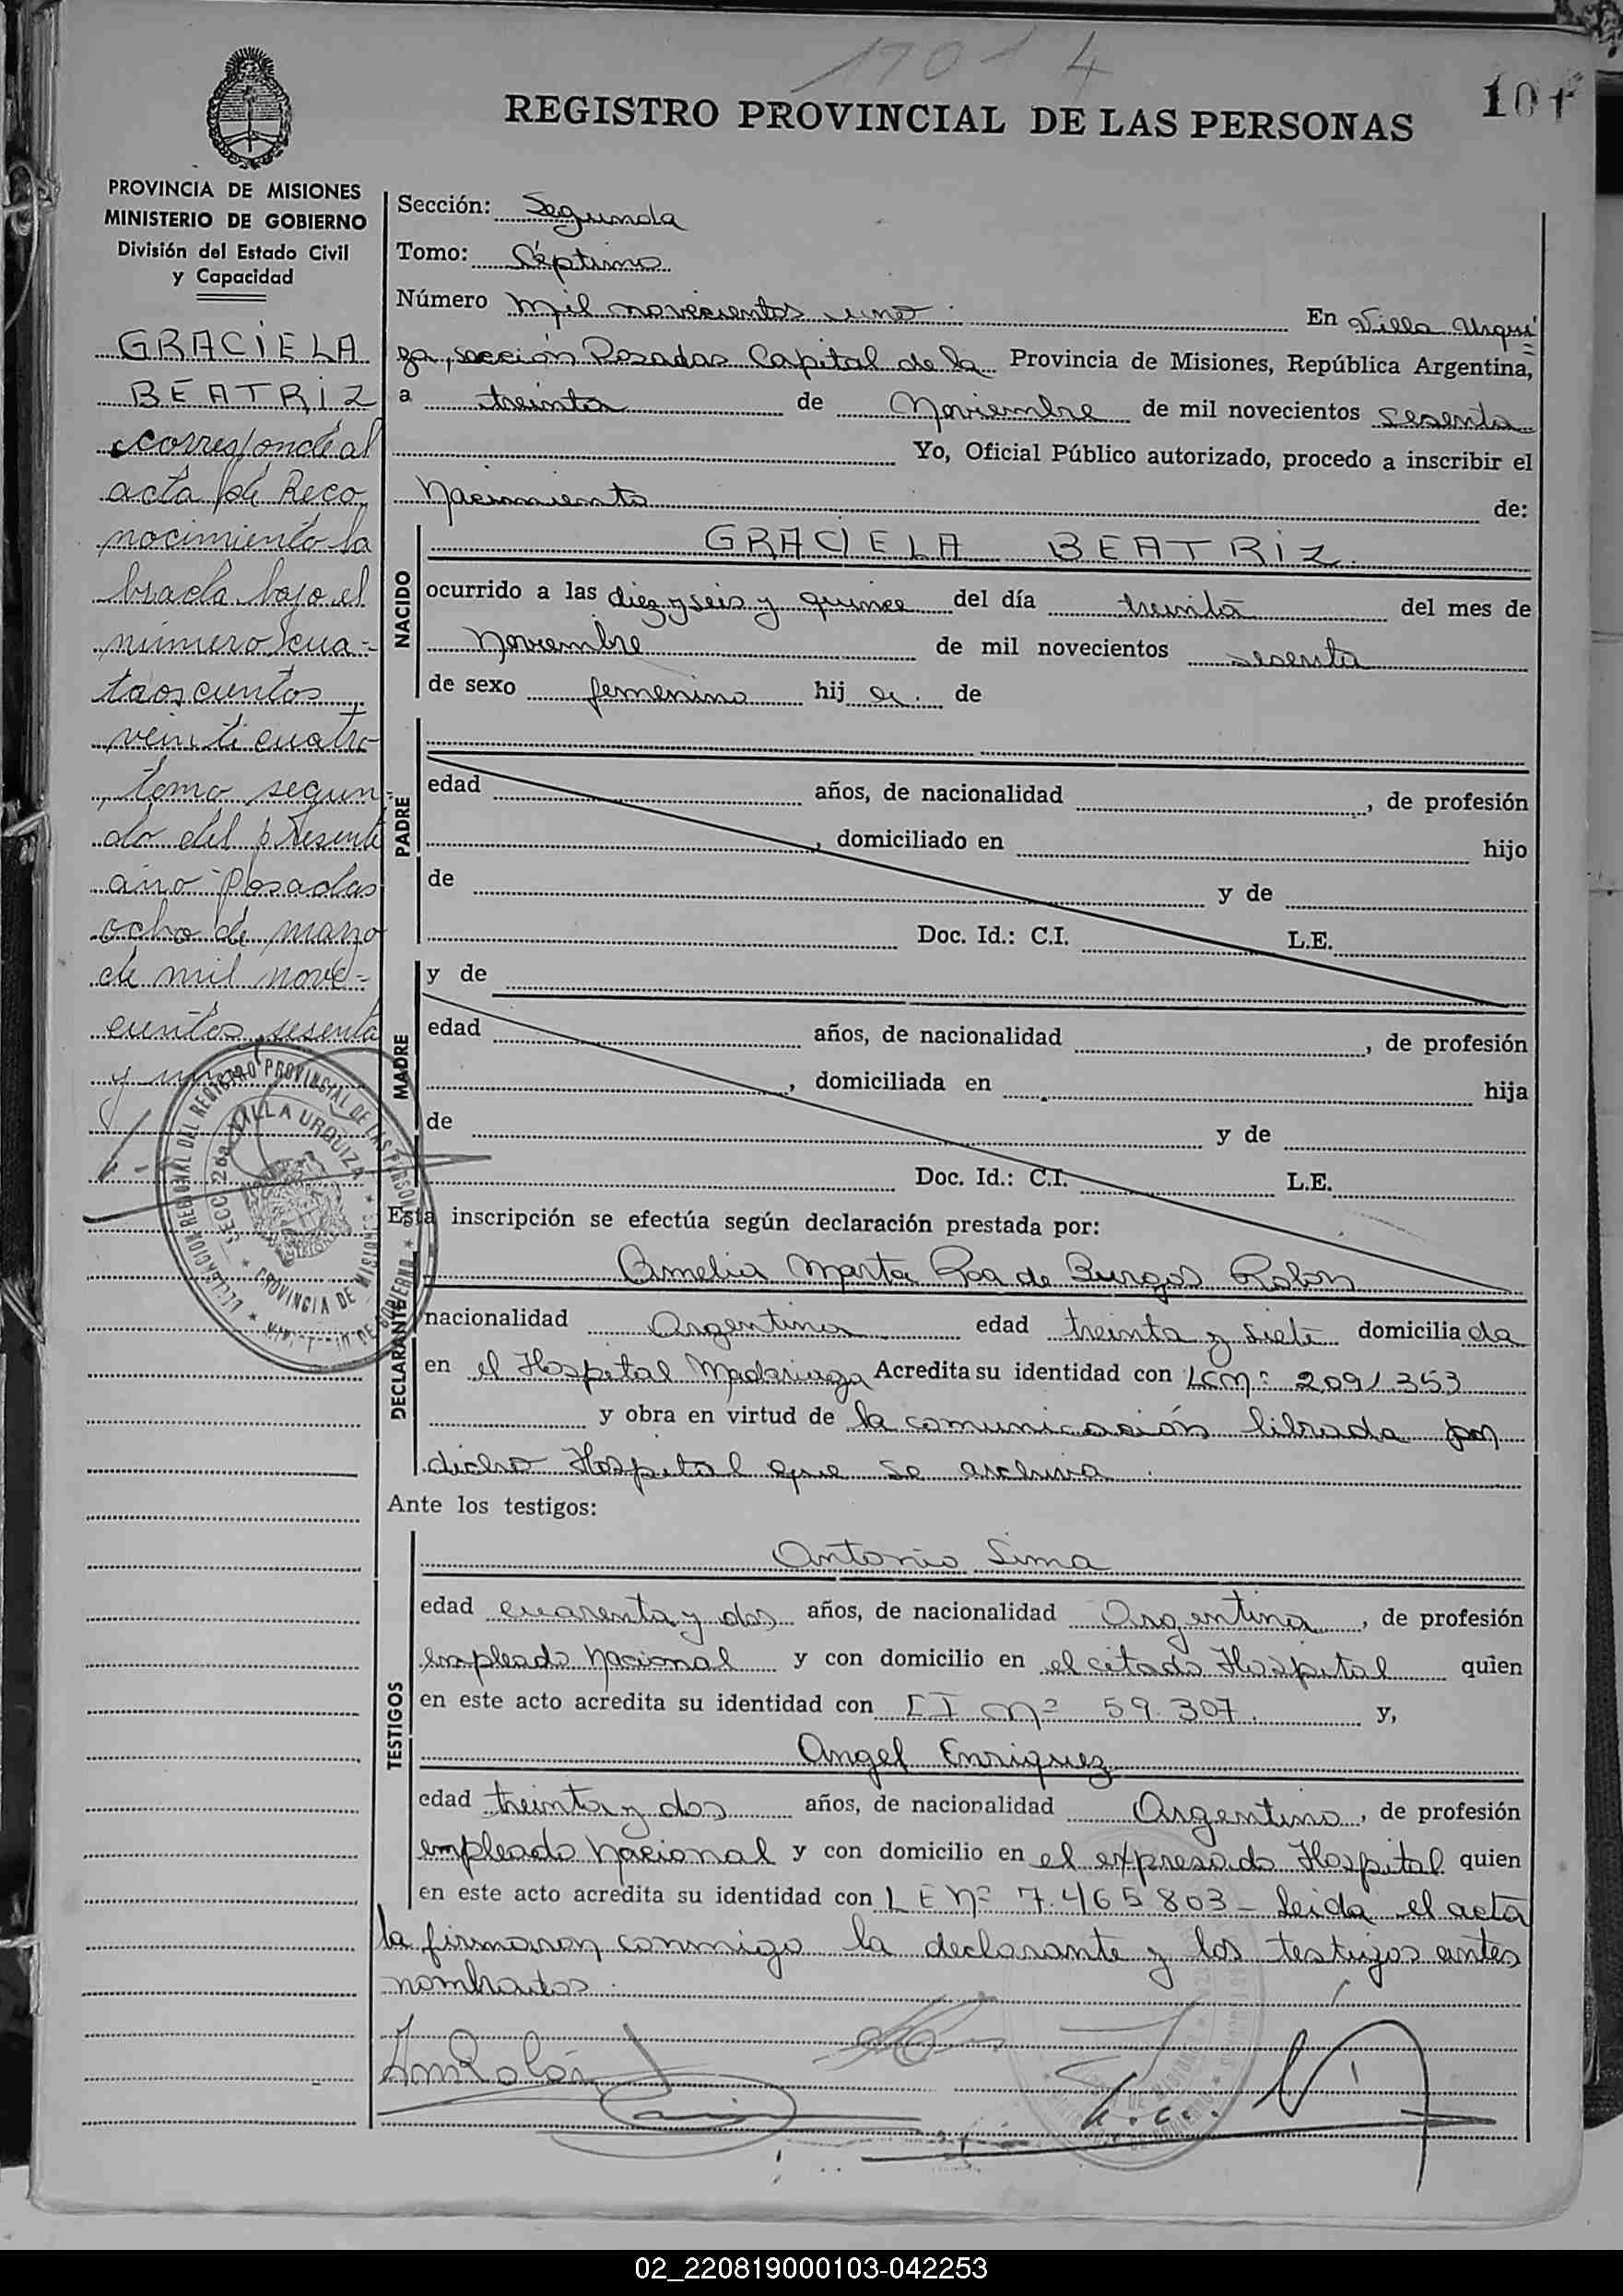 1701 4
101
REGISTRO PROVINCIAL DE LAS PERSONAS
PROVINCIA DE MISIONES
MINISTERIO DE GOBIERNO
División del Estado Civil
y Capacidad
GRACIELA
BEATRIZ
corresponde al
acta de Reco
nocimiento la
brada bajo el
número cua-
trocientos
veinticuatro
tomo segun-
do del presente
año Posadas
ocho de marzo
de mil nove-
cientos sesenta
y uno
DELEGACION REGIONAL DEL REGISTRO PROVINCIAL DE LAS PERSONAS
SECC. 2da VILLA URQUIZA
PROVINCIA DE MISIONES
Sección: Segunda
Tomo: Séptimo
Número mil novecientos uno. En Villa Urqui=
za, sección Posadas Capital de la Provincia de Misiones, República Argentina,
a treinta de Noviembre de mil novecientos sesenta
Yo, Oficial Público autorizado, procedo a inscribir el
Nacimiento de:
NACIDO
GRACIELA BEATRIZ.
ocurrido a las diez y seis y quince del día treinta del mes de
Noviembre de mil novecientos sesenta
de sexo femenino hij a. de
PADRE
edad años, de nacionalidad , de profesión
, domiciliado en hijo
de y de
Doc. Id.: C.I. L.E.
MADRE
y de
edad años, de nacionalidad , de profesión
, domiciliada en hija
de y de
Doc. Id.: C.I. L.E.
Esta inscripción se efectúa según declaración prestada por:
DECLARANTE
Amelia Marta Roa de Burgos Rolon
nacionalidad Argentina edad treinta y siete domicilia da
en el Hospital Madariaga Acredita su identidad con LCNº 2091.353
y obra en virtud de la comunicación librada por
dicho Hospital que se archiva.
Ante los testigos:
TESTIGOS
Antonio Sima
edad cuarenta y dos años, de nacionalidad Argentina, de profesión
empleado nacional y con domicilio en el citado Hospital quien
en este acto acredita su identidad con CI Nº 59.307. y,
Angel Enriquez
edad treinta y dos años, de nacionalidad Argentina, de profesión
empleado nacional y con domicilio en el expresado Hospital quien
en este acto acredita su identidad con LE Nº 7.465803 - Leida el acta
la firmaron conmigo la declarante y los testigos antes
nombrados.
AmRolón
02_220819000103-042253